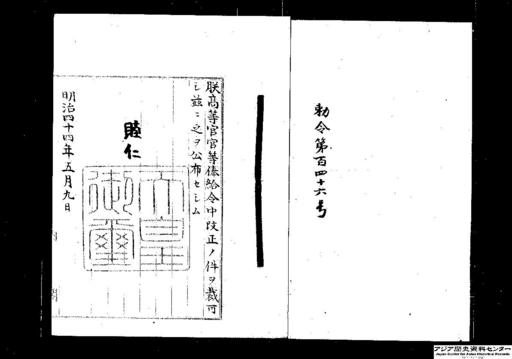 勅令第百四十六号
朕高等官官等俸給令中改正ノ件ヲ裁可
シ茲ニ之ヲ公布セシム
睦仁
天皇御璽
明治四十四年五月九日
内閣
アジア歴史資料センター
Japan Center for Asian Historical Records